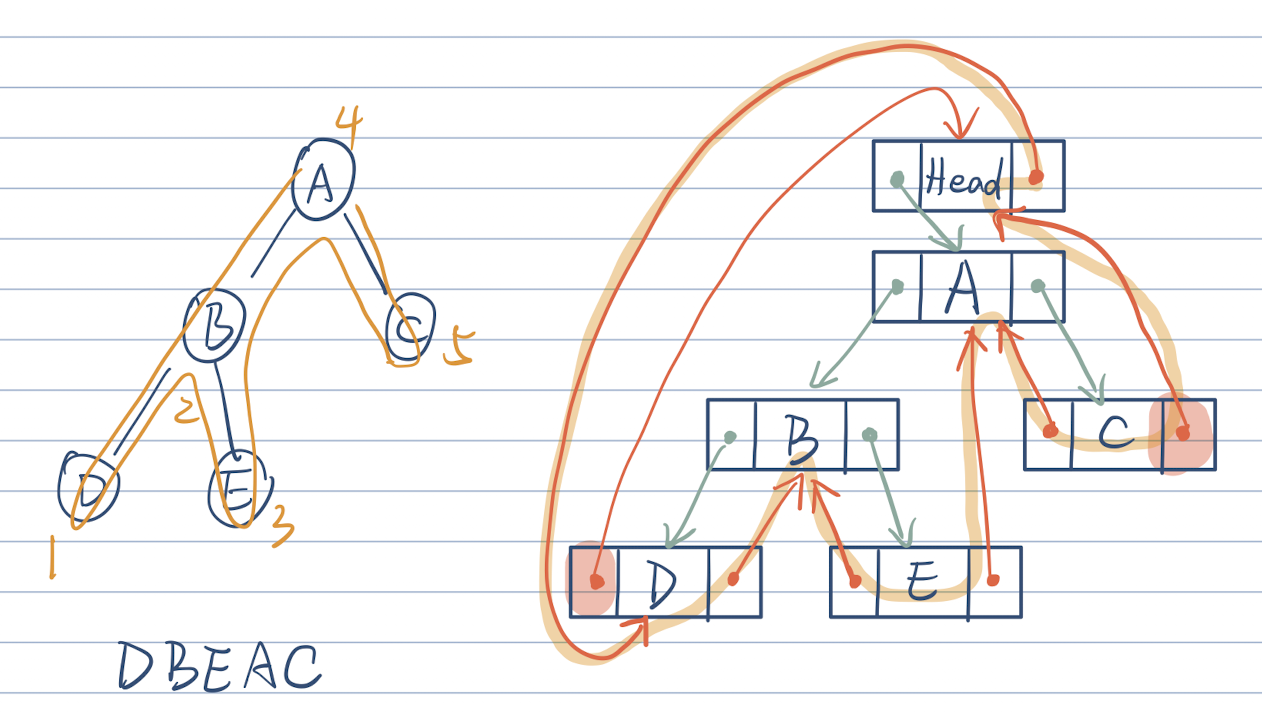 4
A
B
C
5
2
D
E
3
1
DBEAC
Head
A
B
C
D
E